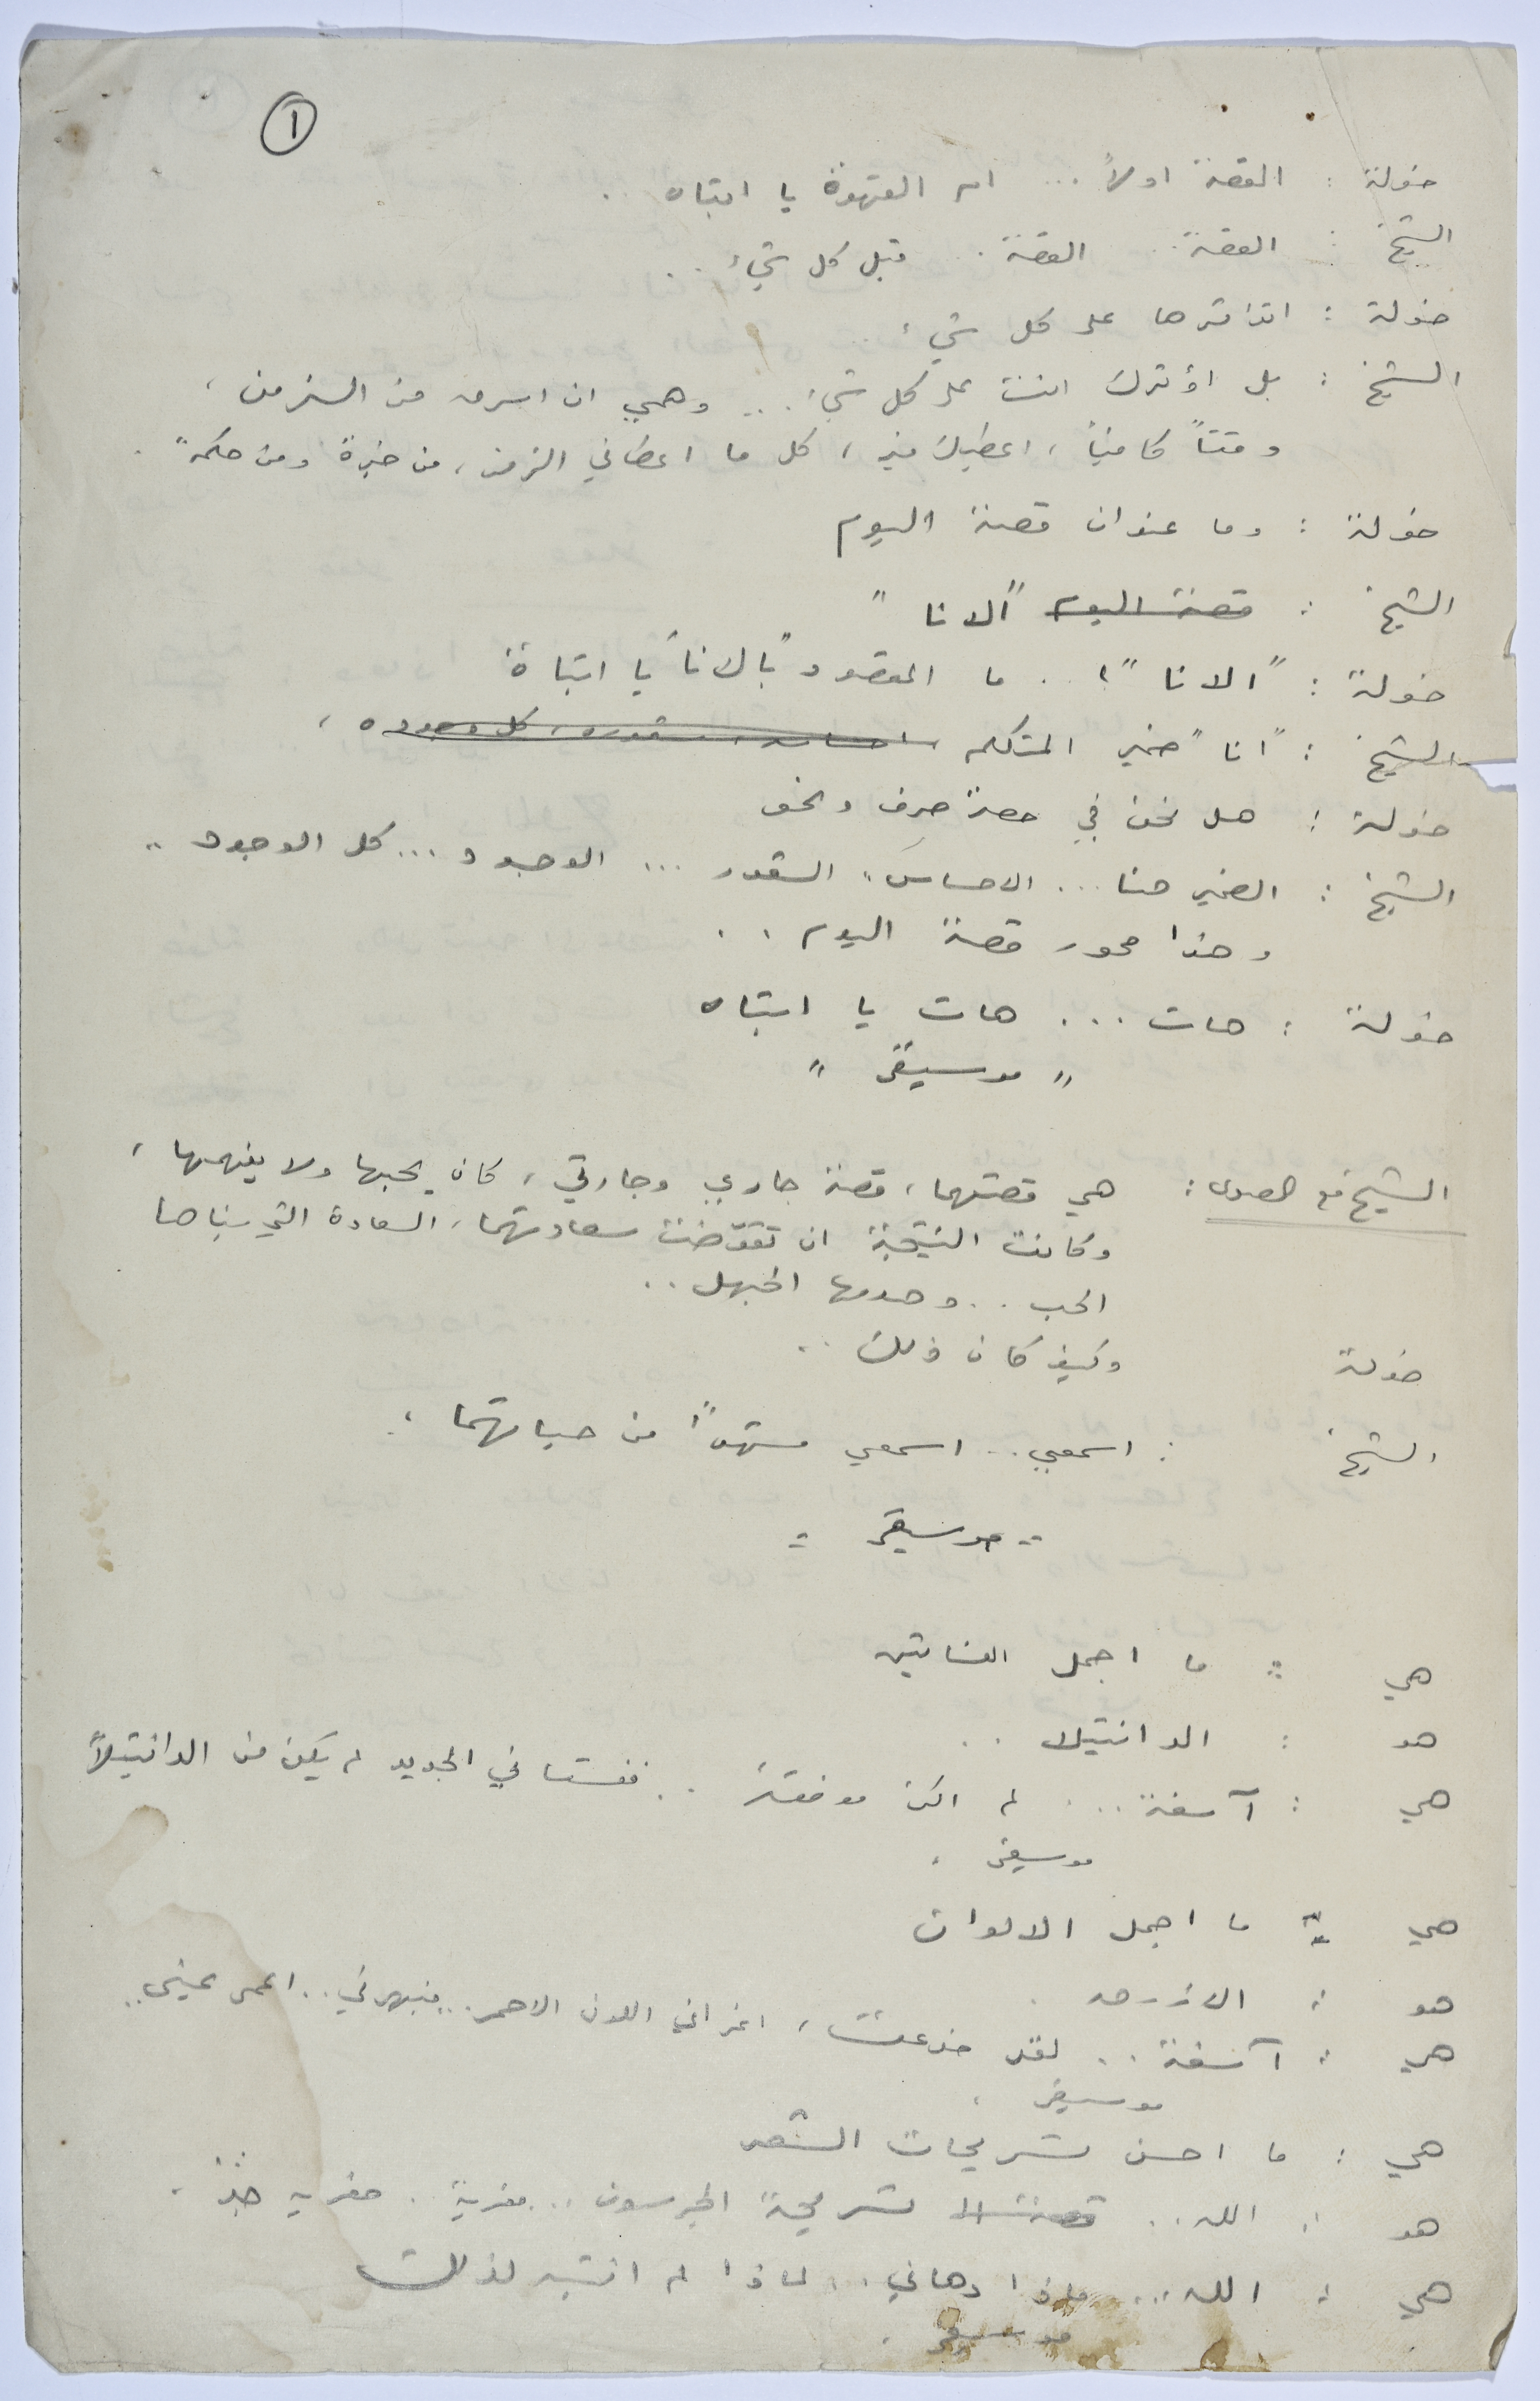 ١
خولة : القصة اولاً ... ام القهوة يا ابتاه ..
الشيخ : القصة .. القصة .. قبل كل شيء ..
خولة : اتؤثرها على كل شيء
الشيخ : بل اؤثرك انت على كل شيء ... وهمي ان اسرق من الزمن ،
وقتاً كافياً ، اعطيك فيه ، كل ما اعطاني الزمن ، من خبرة ومن حكمة .
خولة : وما عنوان قصة اليوم
الشيخ : قصة اليوم "الانا"
خولة : "الانا" ؟ .. ما المقصود "بالانا" يا ابتاه
الشيخ : "انا" ضمير المتكلم ، احساسه ، شعوره ، كل وجوده ،
خولة : هل نحن في حصة صرف ونحو
الشيخ : الضمير هنا ... الاحساس .. الشعور ... الوجود ... كل الوجود ..
وهذا محور قصة اليوم ..
خولة : هات ... هات يا ابتاه
" موسيقى "
الشيخ مع الصدى : هي قصتهما ، قصة جاري وجارتي ، كان يحبها ولا يفهمها ،
وكانت النتيجة ان تقوّضت سعادتهما ، السعادة التي بناها
الحب .. وهدمها الجهل ..
خولة وكيف كان ذلك ..
الشيخ : اسمعي .. اسمعي مشهداً من حياتهما .
" موسيقى "
هي : ما اجمل الفساتين
هو : الدانتيلا ..
هي : آسفة ... لم اكن موفقة .. ففستاني الجديد لم يكن من الدانتيلاً
موسيقى .
هي : ما اجمل الالوان
هو : الازرق .
هي : آسفة .. لقد خدعت ، اغراني اللون الاحمر .. فبهرني .. اعمى عيني ..
موسيقى .
هي : ما احسن تسريحات الشعر
هو : الله .. قصة الـ تسريحة الجرسون .. مغرية .. مغرية جداً .
هي : الله ... ماذا دهاني .. لماذا لم انتبه لذلك
موسيقى .